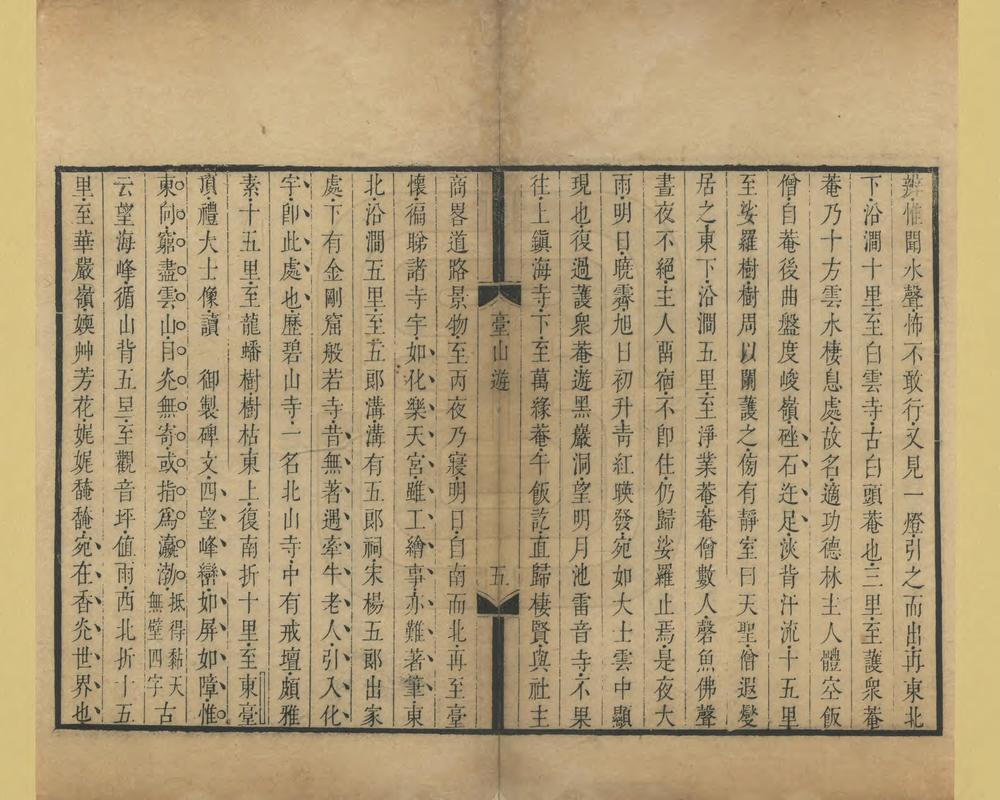 辨惟聞水聲怖不敢行又見一燈引之而出再東北
下沿澗十里至白雲寺古白頭菴也三里至護衆菴
菴乃十方雲水棲息處故名適功德林主人體空飯
僧自菴後曲盤度峻嶺砼石迮足浹背汗流十五里
至娑羅樹樹周以闌護之傍有靜室曰天聖僧遐燮
居之東下沿澗五里至淨業菴菴僧數人磬魚佛聲
晝夜不絕主人畱宿不卽住仍歸娑羅止焉是夜大
雨明日曉霽旭日初升靑紅暎發宛如大士雲中顯
現也復過護衆菴遊黑巖洞望明月池雷音寺不果
往上鎭海寺下至萬緣菴午飯訖直歸棲賢與社主
臺山遊
五
商畧道路景物至丙夜乃寢明日自南而北再至臺
懷徧睇諸寺宇如化樂天宮雖工繪事亦難著筆東
北沿澗五里至五郞溝溝有五郞祠宋楊五郞出家
處下有金剛窟般若寺昔無著遇牽牛老人引入化
宇卽此處也歷碧山寺一名北山寺中有戒壇頗雅
素十五里至龍蟠樹樹枯東上復南折十里至東臺
頂禮大士像讀 御製碑文四望峰巒如屏如障惟
東向窮盡雲山目光無寄或指爲瀛渤抵得黏天無壁四字古
云望海峰循山背五里至觀音坪値雨西北折十五
里至華嚴嶺媆艸芳花娓娓馣馣宛在香光世界也